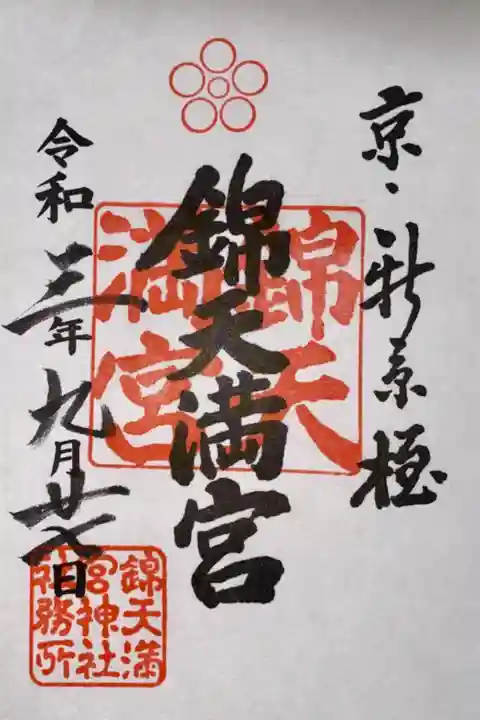 京・新京極
錦天満宮
錦天
満宮
令和三年九月廿七日
錦天満
宮神社
社務所